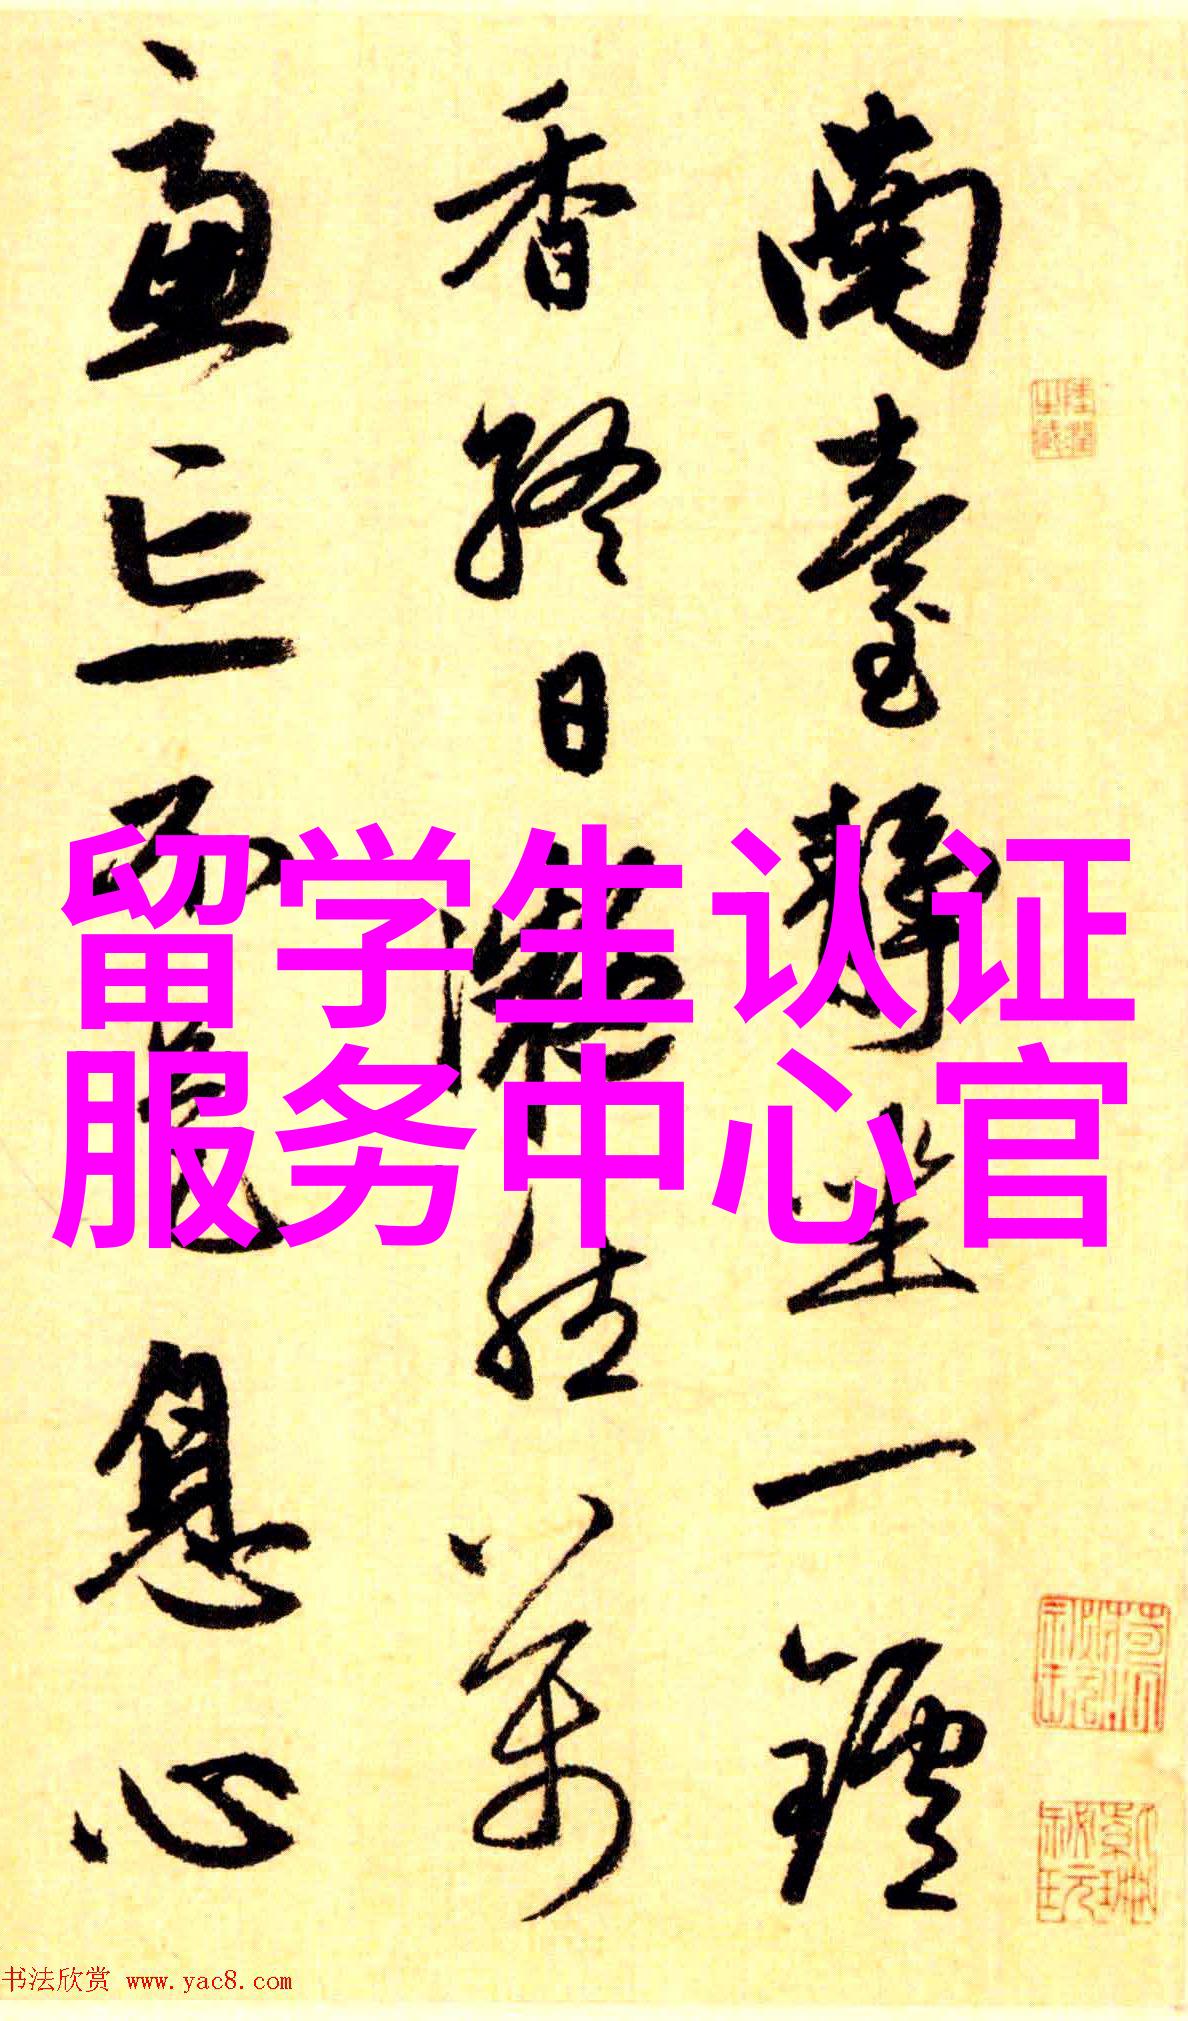 南臺静坐一鑪
香终日凝然萬
慮亡不是息心
留学生认证
服务中心官
书法欣赏 www.yac8.com